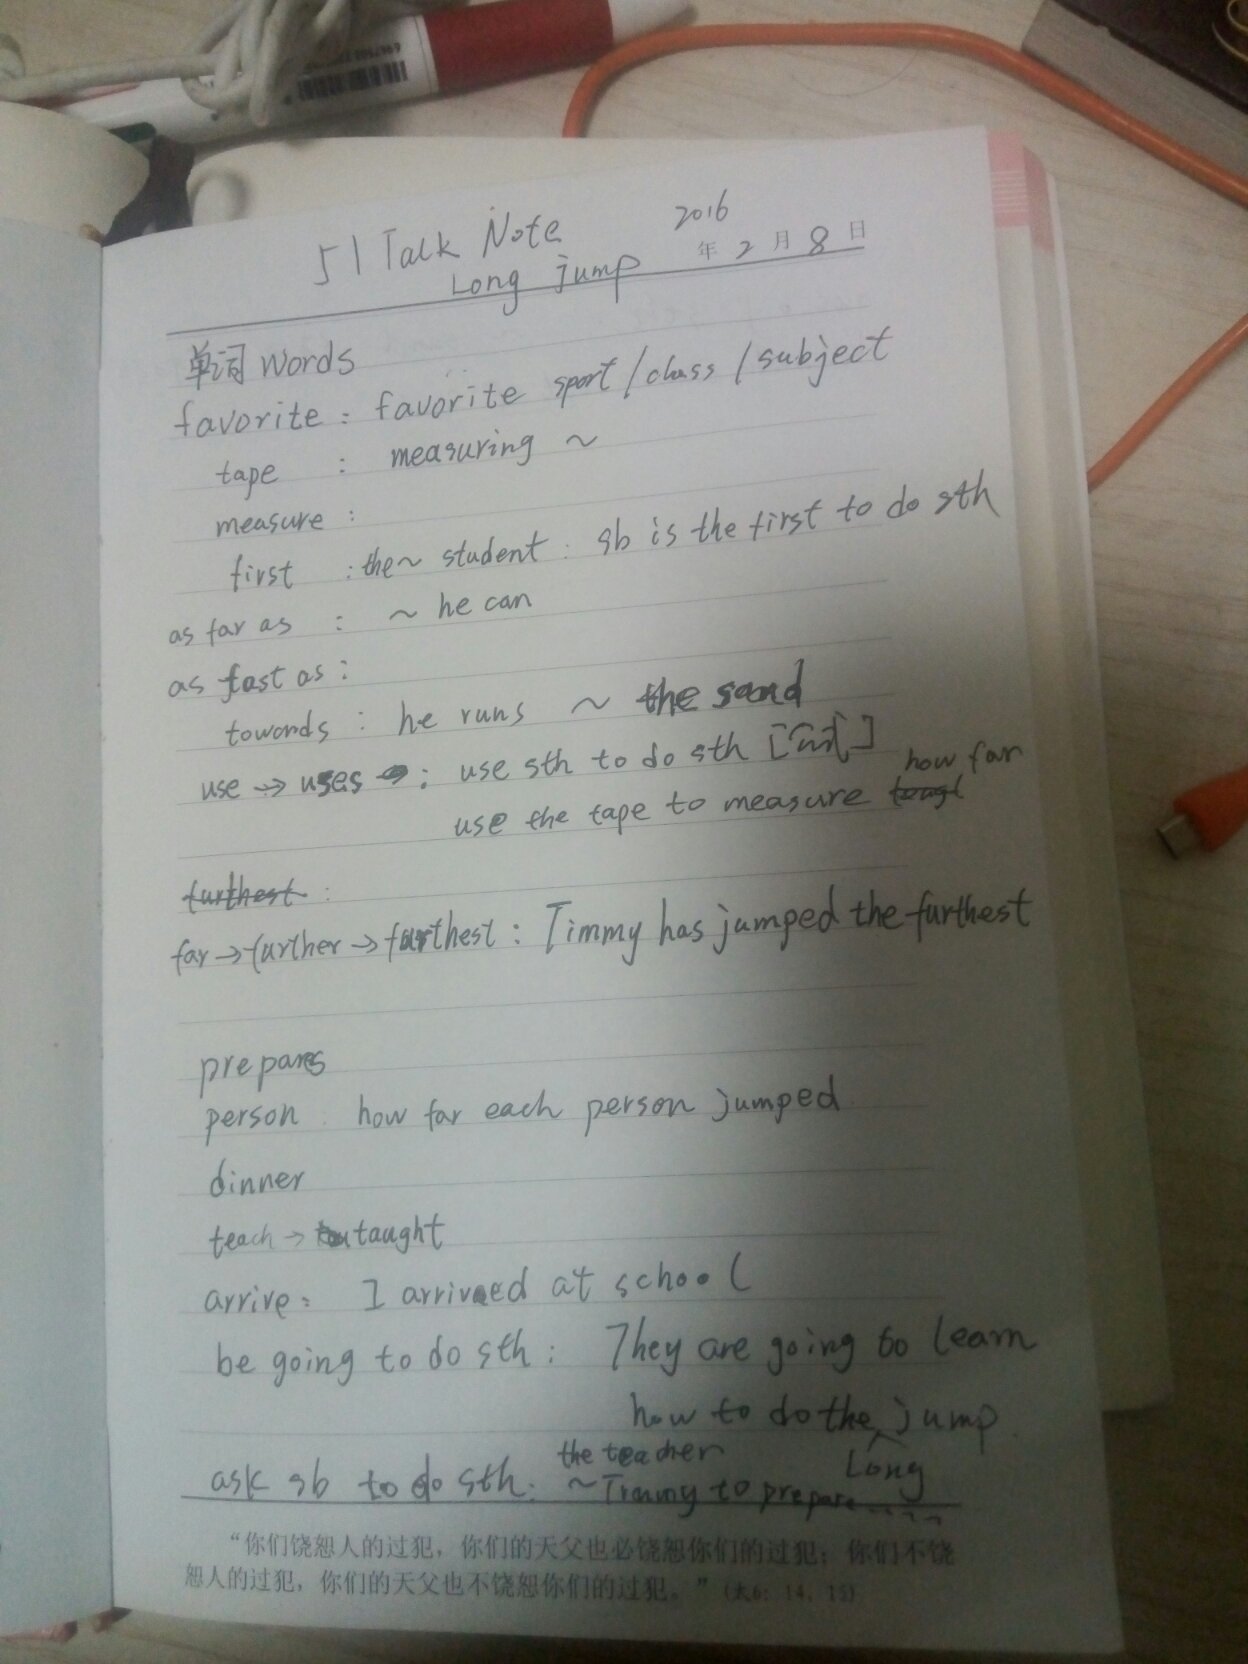 51 Talk Note
2016
年 2 月 8 日
Long jump
单词 words
favorite : favorite sport / class / subject
tape : measuring ~
measure :
first : the ~ student : sb is the first to do sth
as far as : ~ he can
as fast as :
towards : he runs ~ the sand
use → uses : use sth to do sth
how far
use the tape to measure
furthest :
far → further → furthest : Timmy has jumped the furthest
prepares
person how far each person jumped
dinner
teach → taught
arrive : I arrived at school
be going to do sth : They are going to learn
how to do the jump
Long
the teacher
ask sb to do sth : ~ Timmy to prepare ....
“你们饶恕人的过犯，你们的天父也必饶恕你们的过犯；你们不饶
恕人的过犯，你们的天父也不饶恕你们的过犯。”（太6：14，15）